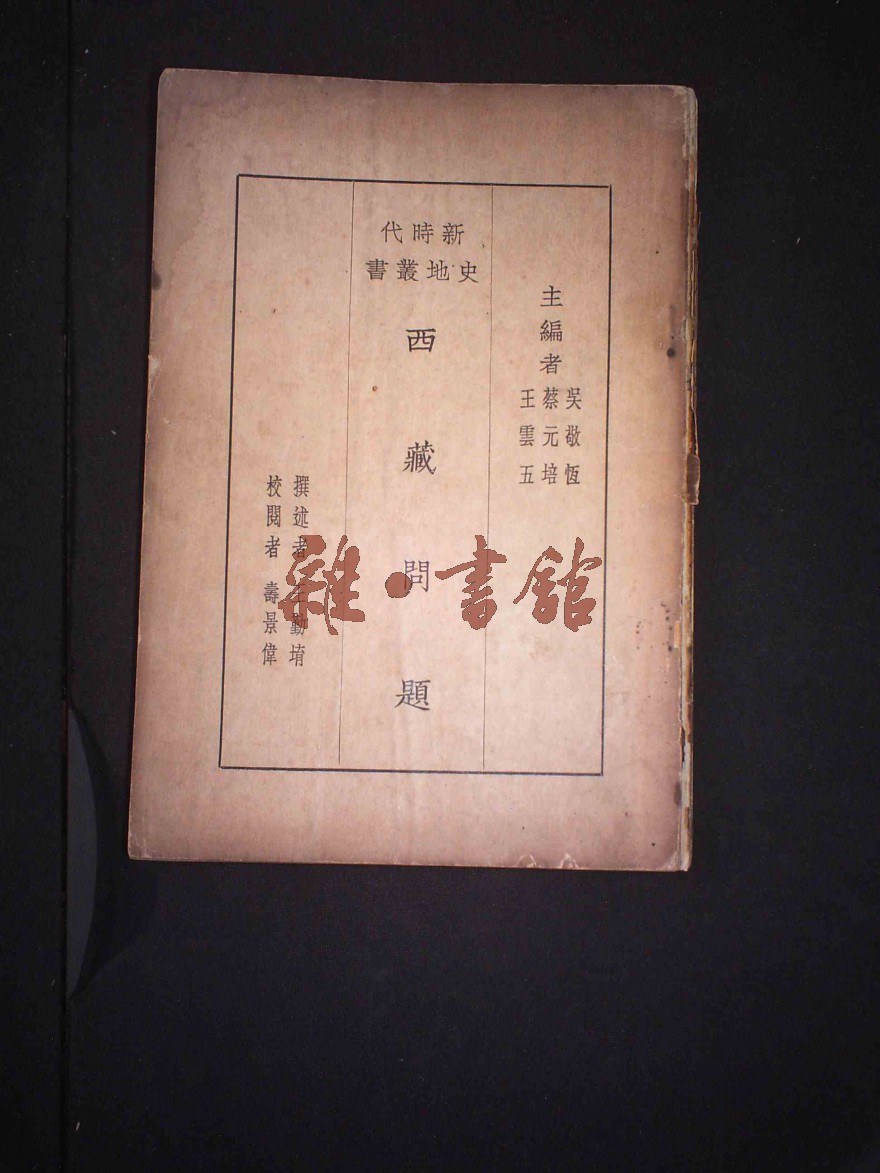 主編者
吳敬恆
蔡元培
王雲五
新時代
史地叢書
西藏問題
撰述者 王勤堉
校閱者 壽景偉
雜·書館